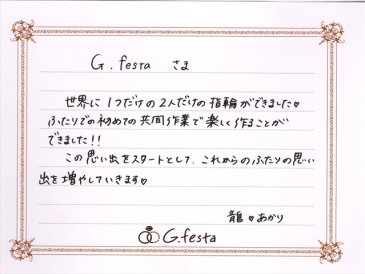 G. festa さま
世界に1つだけの2人だけの指輪ができました♥
ふたりでの初めての共同作業で楽しく作ることが
できました!!
この思い出をスタートとして、これからのふたりの思い
出を増やしていきます♥
龍♥あかり
G.festa